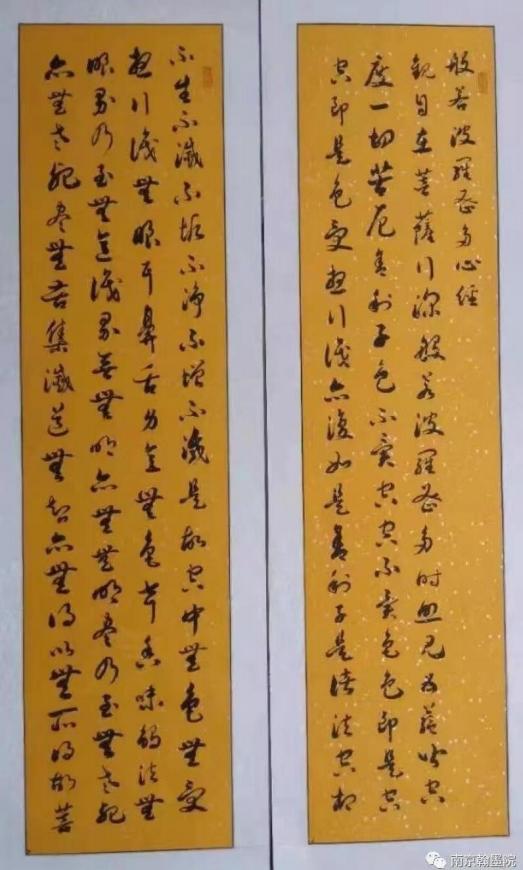 般若波羅蜜多心經
觀自在菩薩行深般若波羅蜜多時照見五蘊皆空
度一切苦厄舍利子色不異空空不異色色即是空
空即是色受想行識亦復如是舍利子是諸法空相
不生不滅不垢不淨不增不減是故空中無色無受
想行識無眼耳鼻舌身意無色聲香味觸法無
眼界乃至無意識界無無明亦無無明盡乃至無老死
亦無老死盡無苦集滅道無智亦無得以無所得故菩
南京翰墨院